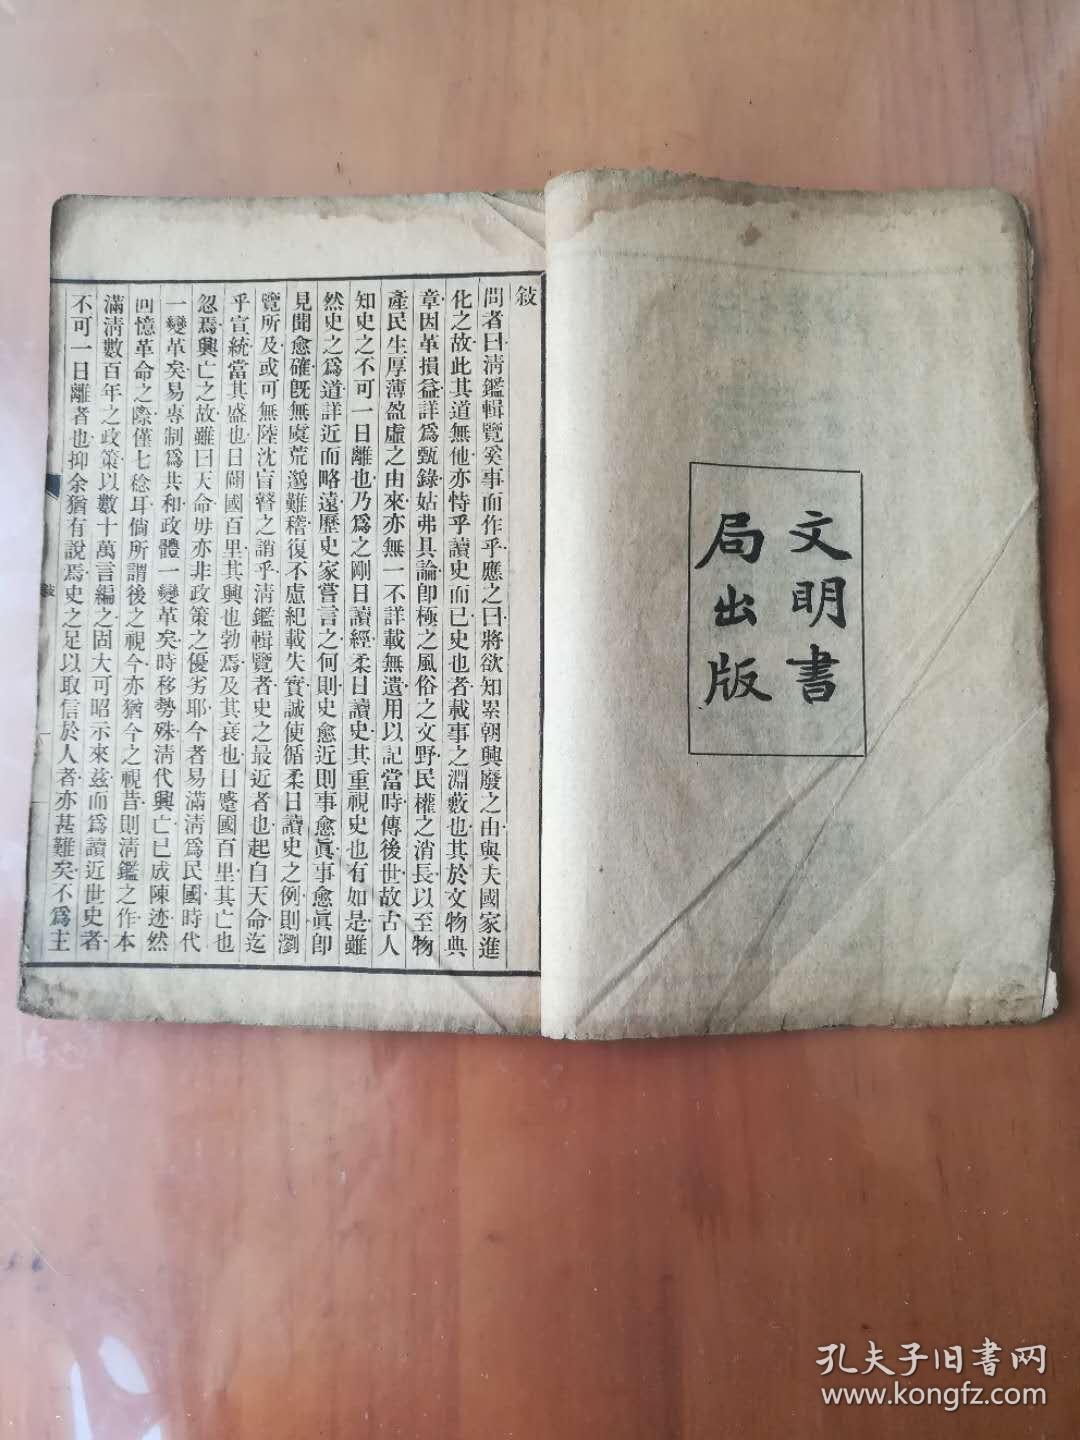 文明書
局出版
敍
問者曰清鑑輯覽奚事而作乎應之曰將欲知累朝興廢之由與夫國家進
化之故此其道無他亦恃乎讀史而已史也者載事之淵藪也其於文物典
章因革損益詳爲甄錄姑弗具論卽極之風俗之文野民權之消長以至物
產民生厚薄盈虛之由來亦無一不詳載無遺用以記當時傳後世故古人
知史之不可一日離也乃爲之剛日讀經柔日讀史其重視史也有如是雖
然史之爲道詳近而略遠歷史家嘗言之何則史愈近則事愈眞事愈眞卽
見聞愈確旣無虞荒邈難稽復不慮紀載失實誠使循柔日讀史之例則瀏
覽所及或可無陸沈盲瞽之誚乎清鑑輯覽者史之最近者也起自天命迄
乎宣統當其盛也日闢國百里其興也勃焉及其衰也日蹙國百里其亡也
忽焉興亡之故雖曰天命毋亦非政策之優劣耶今者易滿淸爲民國時代
一變革矣易專制爲共和政體一變革矣時移勢殊淸代興亡已成陳迹然
回憶革命之際僅七稔耳倘所謂後之視今亦猶今之視昔則淸鑑之作本
滿淸數百年之政策以數十萬言編之固大可昭示來茲而爲讀近世史者
不可一日離者也抑余猶有說焉史之足以取信於人者亦甚難矣不爲主
敍
孔夫子旧書网
www.kongfz.com